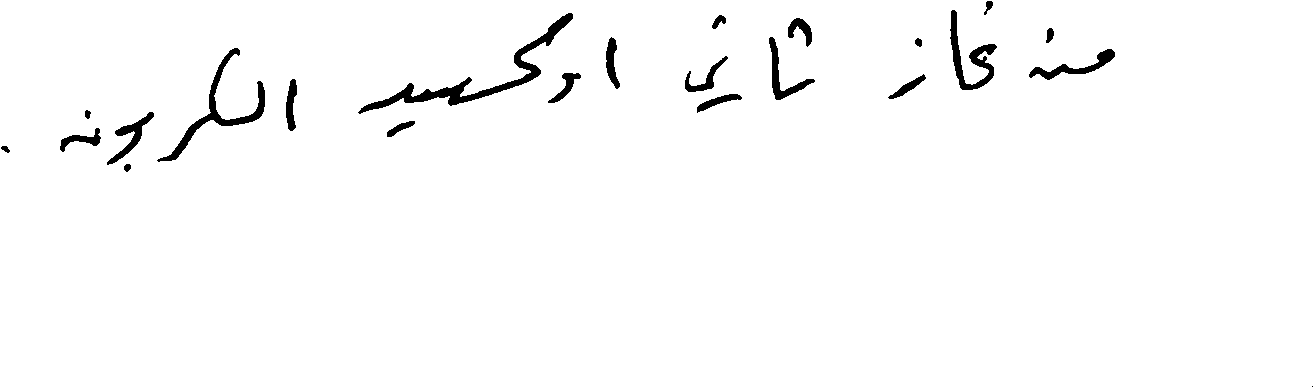 من غاز ثاني اوكسيد الكربون .